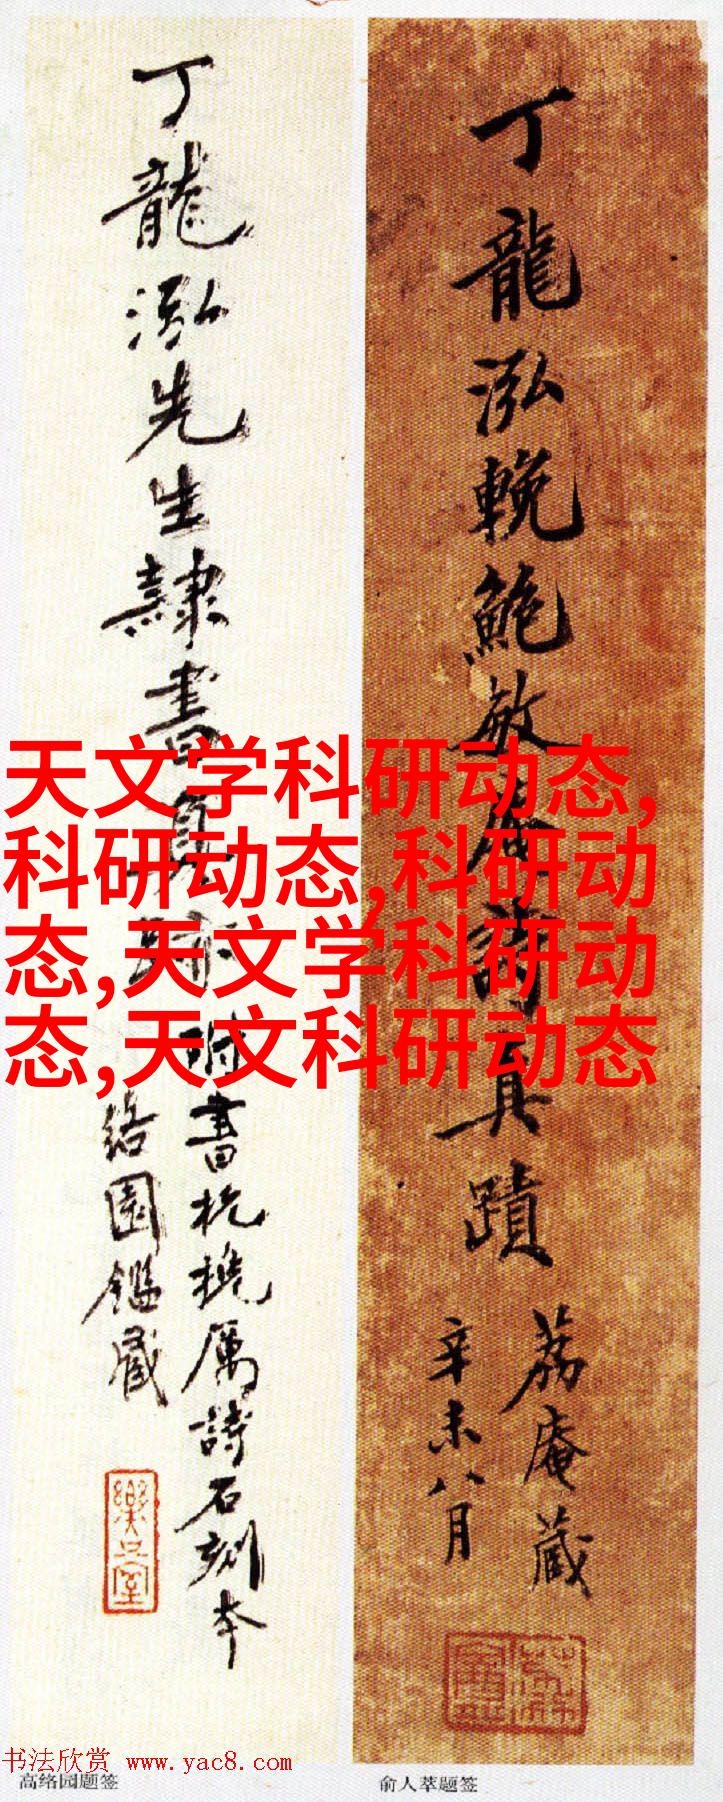 丁龍泓輓鮑敏庵詩真蹟
荔庵蔵
辛未八月
丁龍泓先生隸書真跡
附書杭
厲詩石刻本
絡園鑑藏
天文学科研动态,
科研动态,科研动
态,天文学科研动
态,天文科研动态
书法欣赏 www.yac8.com
高络园题签
俞人萃题签